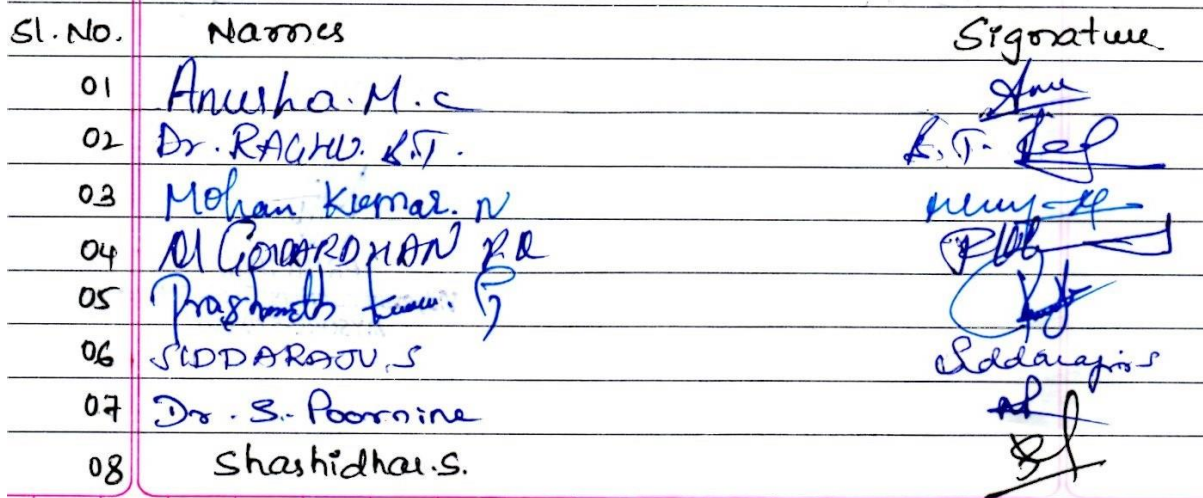 Sl. No. Names Signature
01 Anusha. M. C Anu
02 Dr. RAGHU. B.T. B.T.
03 Mohan Kumar. N
04 GOVARDHAN
05 Prashanth Kumar. G
06 SIDDARAJU. S Siddaraju S
07 Dr. S. Poornima
08 Shashidhar. S.